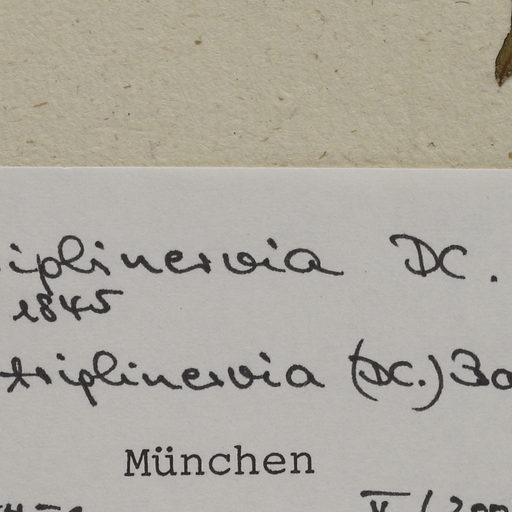 iplinervia DC.
1845
triplinervia (DC.) Bo
München
V / 200